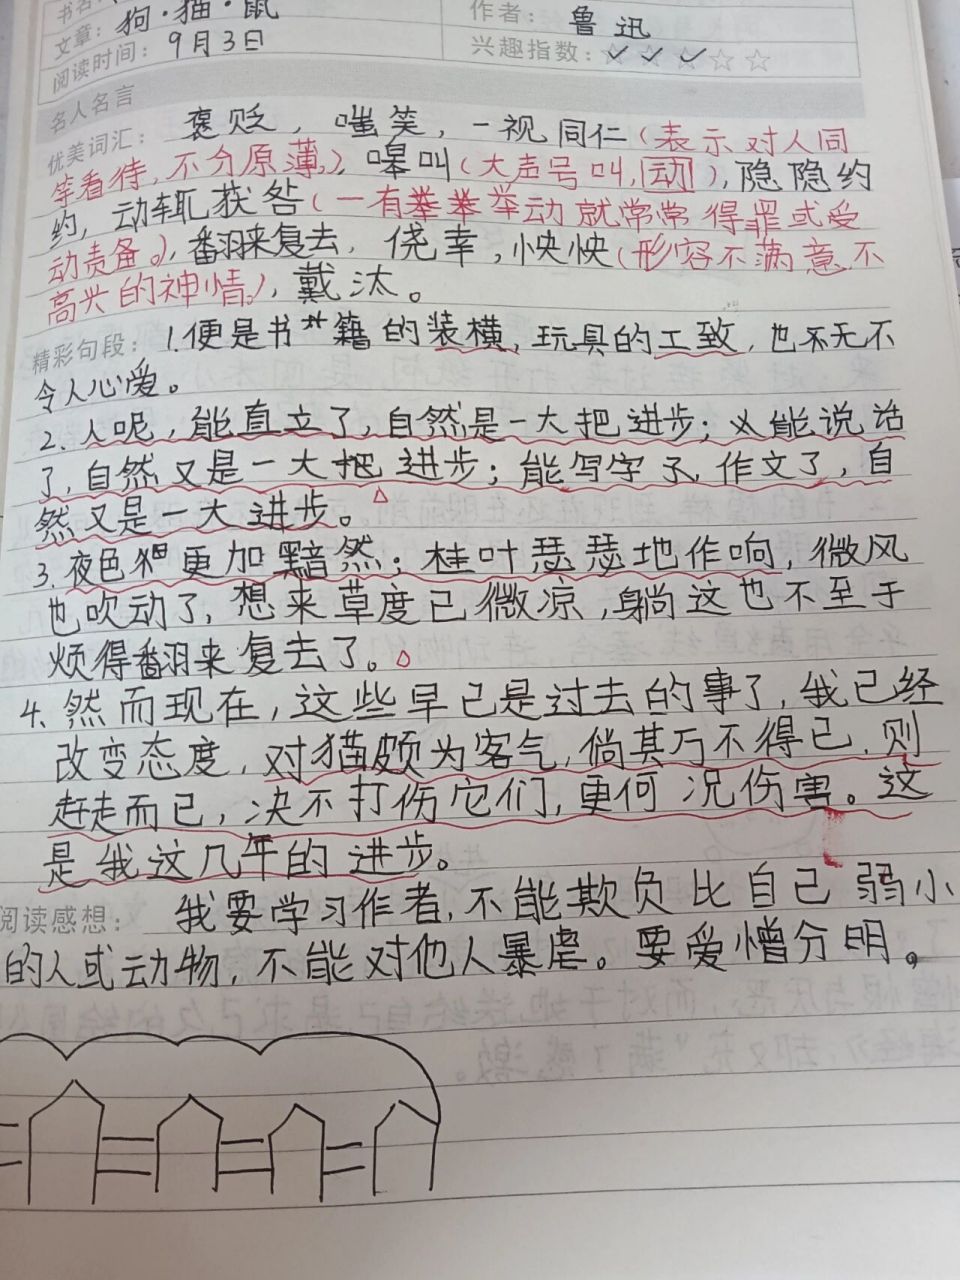 书名:
文章: 狗·猫·鼠
作者: 鲁迅
阅读时间: 9月3日
兴趣指数: ☆☆☆☆☆
名人名言
优美词汇: 褒贬，嗤笑，一视同仁(表示对人同
等看待,不分原薄。)，嗥叫(大声号叫,动)，隐隐约
约，动辄获咎(一有举动就常常得罪或受
动责备。)，翻来复去，侥幸，怏怏(形容不满意不
高兴的神情。)，戴汰。
精彩句段: 1.便是书籍的装横，玩具的工致，也不无不
令人心爱。
2.人呢，能直立了，自然是一大把进步；义能说话
了，自然又是一大把进步；能写字了，作文了，自
然又是一大进步。
3.夜色更加黯然；桂叶瑟瑟地作响，微风
也吹动了，想来草度已微凉，躺这也不至于
烦得翻来复去了。
4.然而现在，这些早已是过去的事了，我已经
改变态度，对猫颇为客气，倘其万不得已，则
赶走而已，决不打伤它们，更何况伤害。这
是我这几年的进步。
阅读感想: 我要学习作者，不能欺负比自己弱小
的人或动物，不能对他人暴虐。要爱憎分明。